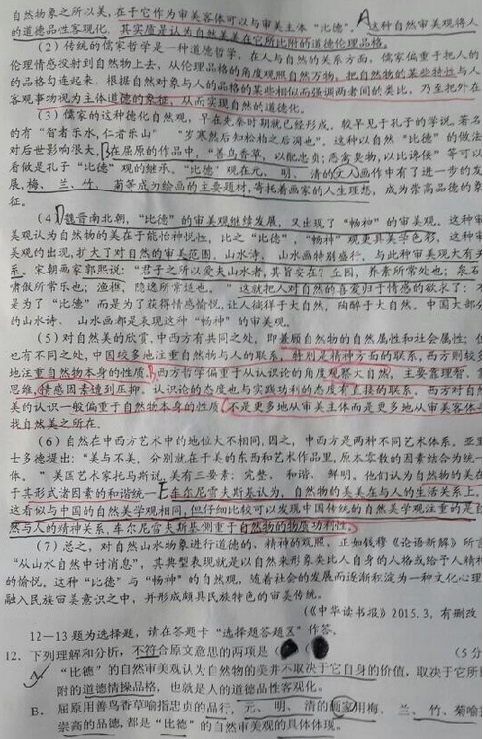 自然物象之所以美,在于它作为审美客体可以与审美主体“比德”。这种自然审美观将人
的道德品性客观化,其实质是认为自然美美在它所比附的道德伦理品格。
(2)传统的儒家哲学是一种道德哲学,在人与自然的关系方面,儒家偏重于把人的
伦理情感投射到自然物上去,从伦理品格的角度观照自然万物,把自然物的某些特性与人
的品格勾连起来,根据自然对象与人的品格的某些相似而强调两者间的类比,乃至把外在
客观事物视为主体道德的象征,从而实现自然的道德化。
(3)儒家的这种德化自然观,早在先秦时期就已经形成。较早见于孔子的学说,著名
的有“智者乐水,仁者乐山”“岁寒然后知松柏之后凋也”。这种以自然“比德”的做法
对后世影响很大,在屈原的作品中,“善鸟香草,以配忠贞;恶禽臭物,以比谗佞”等可以
看做是孔子“比德”观的继承。“比德”观在元、明、清的文人画作中有了进一步的发
展,梅、兰、竹、菊等成为绘画的主要题材,寄托着画家的人生理想,成为崇高品德的象
征。
(4)魏晋南北朝,“比德”的审美观继续发展,又出现了“畅神”的审美观。这种审
美观认为自然物的美在于能怡神悦性,比之“比德”,“畅神”观更具美学色彩,这种审
美观的出现,扩大了对自然的审美范围,山水诗、山水画特别盛行,与此种审美观大有关
系。宋朝画家郭熙说:“君子之所以爱夫山水者,其旨安在?丘园,养素所常处也;泉石
啸傲所常乐也;渔樵,隐逸所常适也。”这就把人对自然的喜爱归于情感的欲求了:不
是为了“比德”而是为了获得情感愉悦,让人徜徉于大自然,陶醉于大自然。中国大部分
的山水诗、山水画都是表现这种“畅神”的审美观。
(5)对自然美的欣赏,中西方有共同之处,即兼顾自然物的自然属性和社会属性;但
也有不同之处,中国较多地注重自然物与人的联系,特别是精神方面的联系,西方则较多
地注重自然物本身的性质。西方哲学偏重于从认识论的角度观察大自然,主要靠理智、
思维,情感因素遭到压抑。认识论的态度也与实践功利的态度有直接的联系。西方对自然
美的认识一般偏重于自然物本身的性质,不是更多地从审美主体而是更多地从审美客体
找自然美之所在。
(6)自然在中西方艺术中的地位大不相同,因之,中西方是两种不同艺术体系。亚里
士多德提出:“美与不美,分别就在于美的东西和艺术作品里,原来零散的因素结合为统一
体。”美国艺术家托马斯说,美有三要素:完整、和谐、鲜明。他们认为自然物的美在
于其形式诸因素的和谐统一。车尔尼雪夫斯基认为,自然物的美美在与人的生活关系上。
这看似与中国的自然美学观相同,但仔细比较可以发现中国传统的自然美学观注重的是自
然与人的精神关系,车尔尼雪夫斯基则重于自然物的物质功利性。
(7)总之,对自然山水物象进行道德的、精神的观照,正如钱穆《论语新解》所言
“从山水自然中讨消息”,其典型表现就是以自然来形象类比人自身的人格或给予人精神
的愉悦。这种“比德”与“畅神”的自然观,随着社会的发展而逐渐积淀为一种文化心理
融入民族审美意识之中,并形成颇具民族特色的审美传统。
(《中华读书报》2015.3,有删改
12—13题为选择题,请在答题卡“选择题答题区”作答。
12.下列理解和分析,不符合原文意思的两项是( )( )(5分
“比德”的自然审美观认为自然物的美并不取决于它自身的价值,取决于它所
附的道德情操品格,也就是人的道德品性客观化。
B.屈原用善鸟香草喻指忠贞的品行,元、明、清的画家用梅、兰、竹、菊喻
崇高的品德,都是“比德”的自然审美观的具体体现。